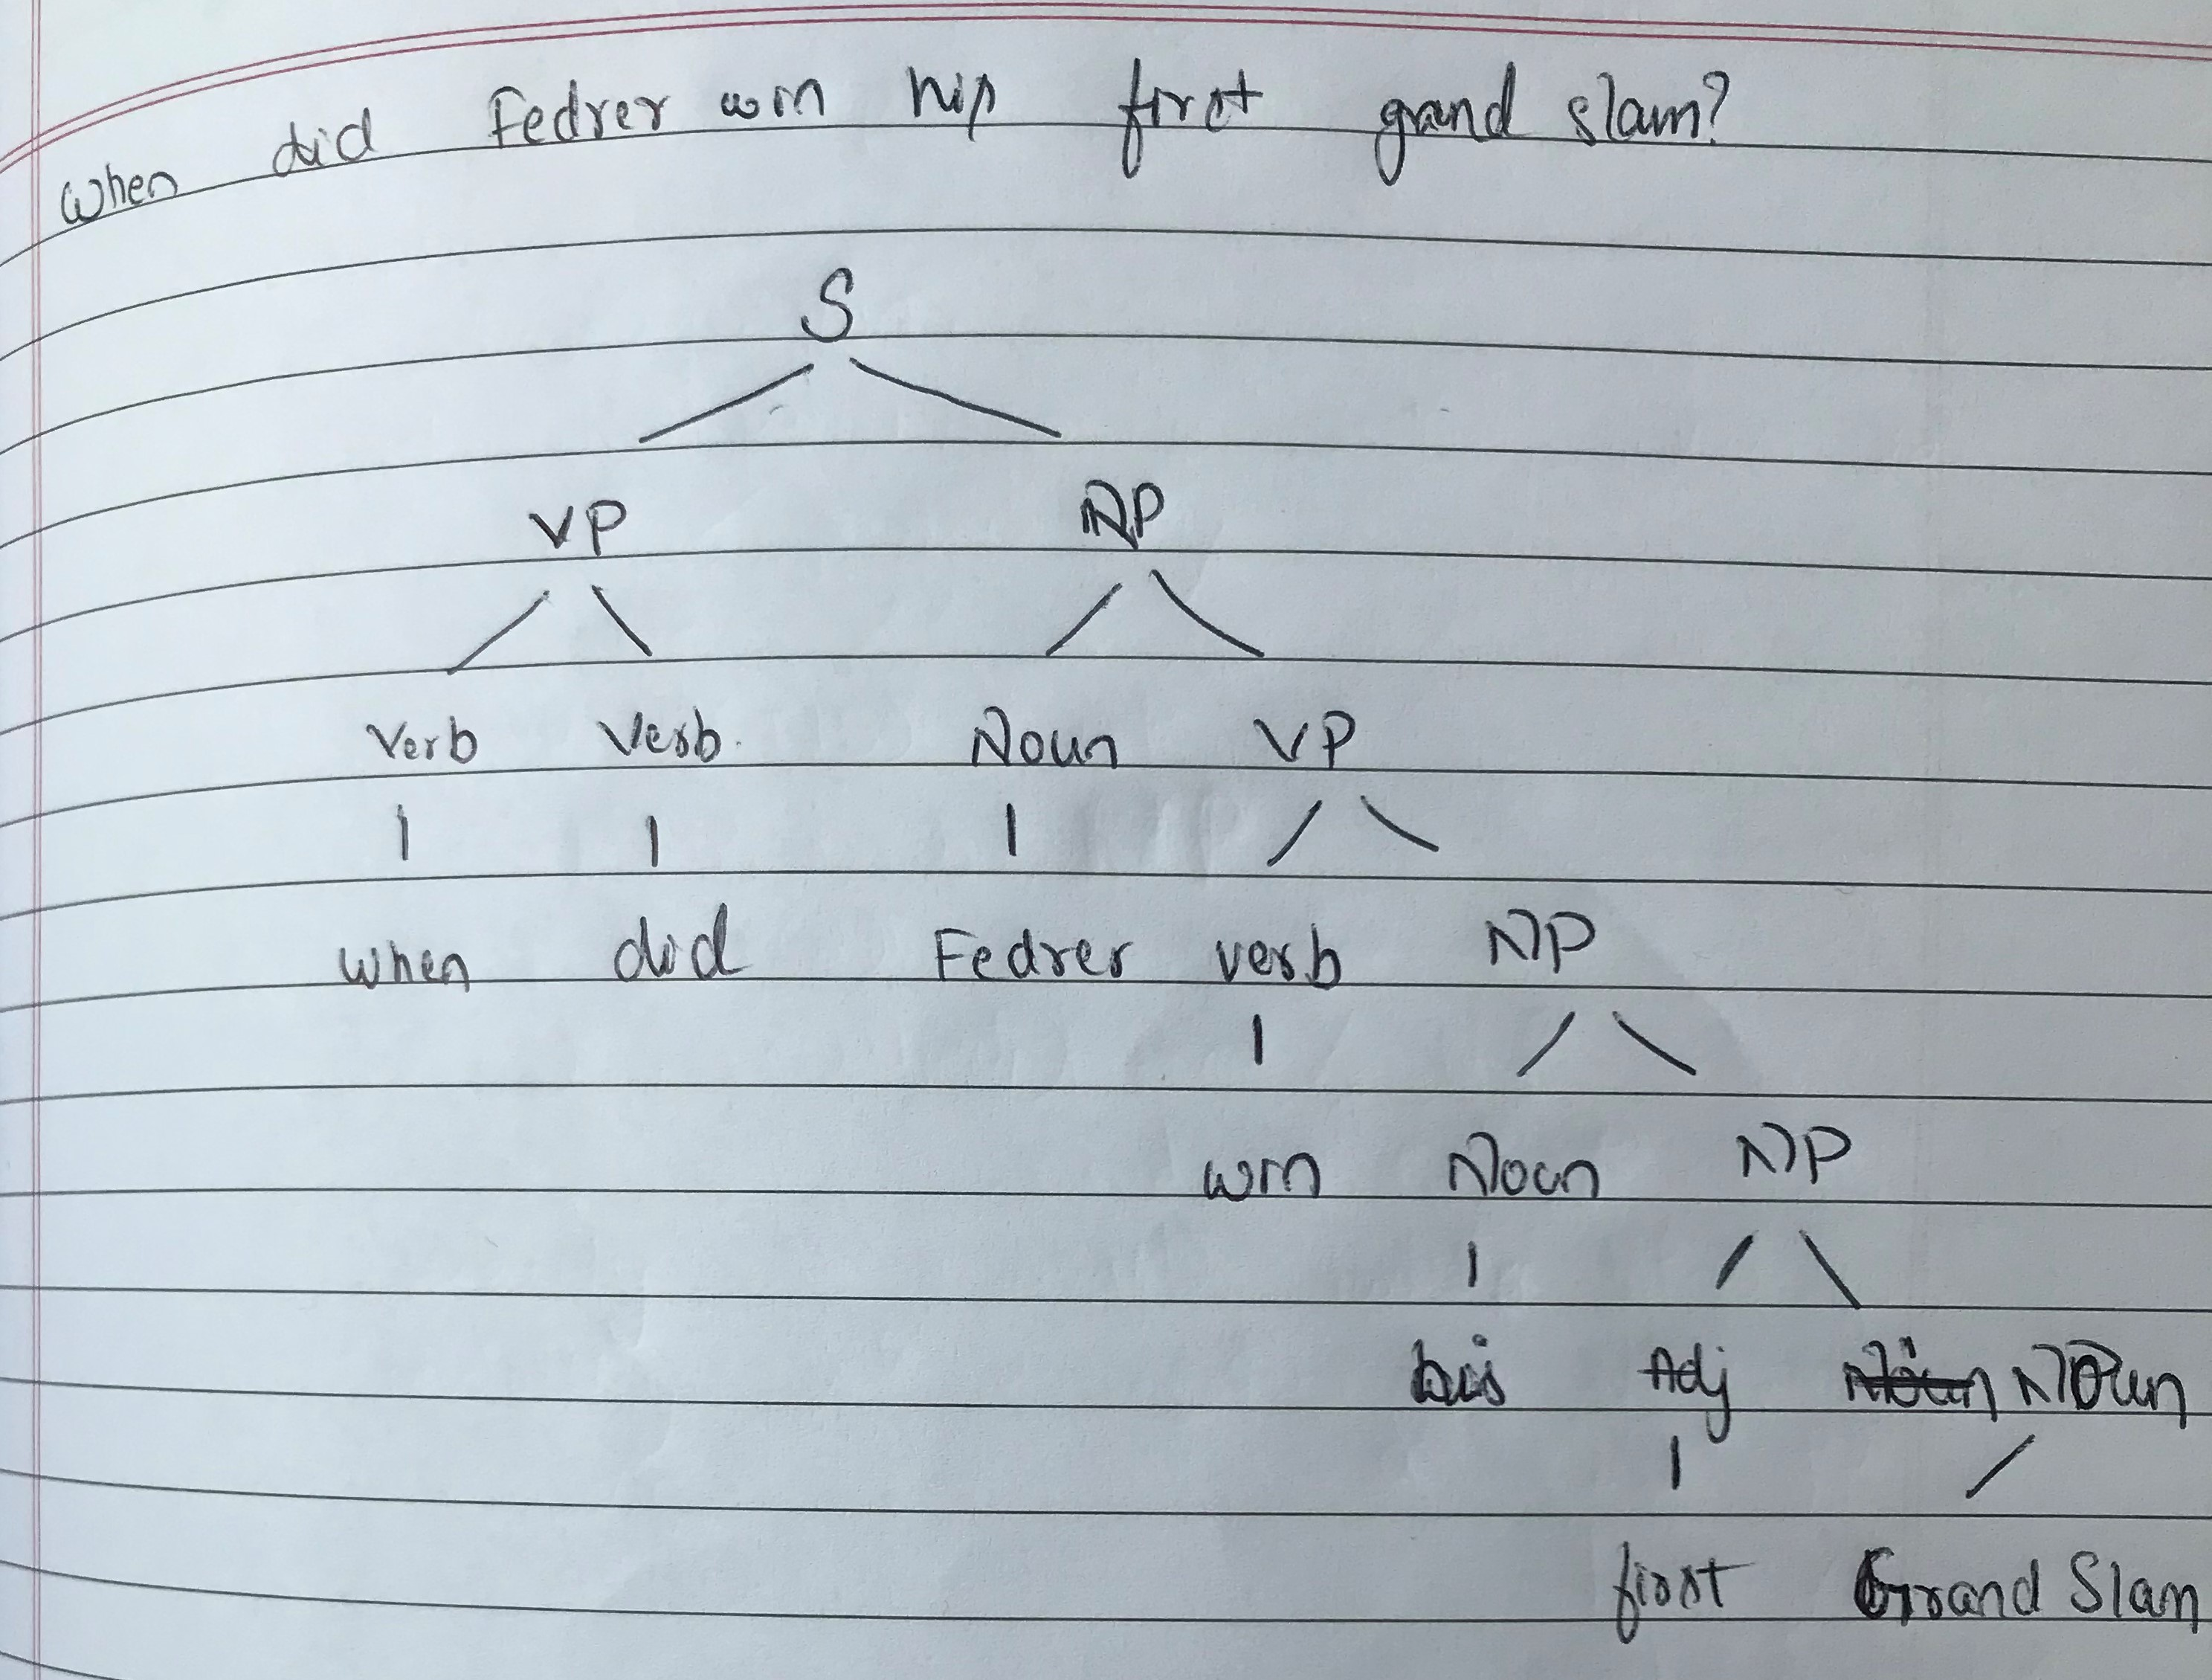 When did Fedrer win his first grand slam?
S
VP NP
Verb Verb Noun VP
When did Fedrer verb NP
win Noun NP
his Adj Noun Noun
first Grand Slam